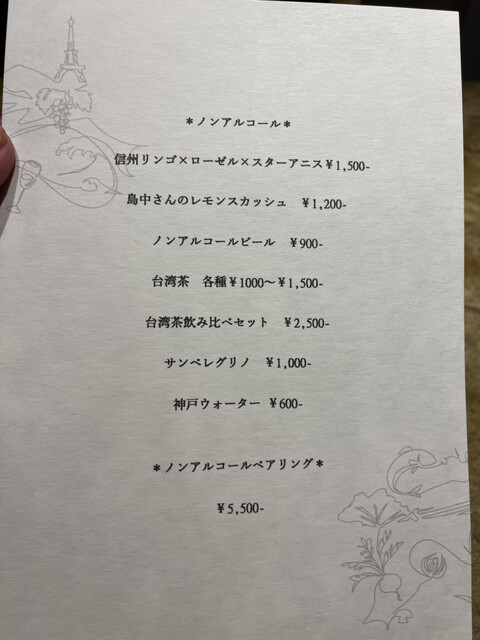 ＊ノンアルコール＊
信州リンゴ×ローゼル×スターアニス￥1,500-
島中さんのレモンスカッシュ　￥1,200-
ノンアルコールビール　￥900-
台湾茶　各種￥1000～￥1,500-
台湾茶飲み比べセット　￥2,500-
サンペレグリノ　￥1,000-
神戸ウォーター ￥600-
＊ノンアルコールペアリング＊
￥5,500-